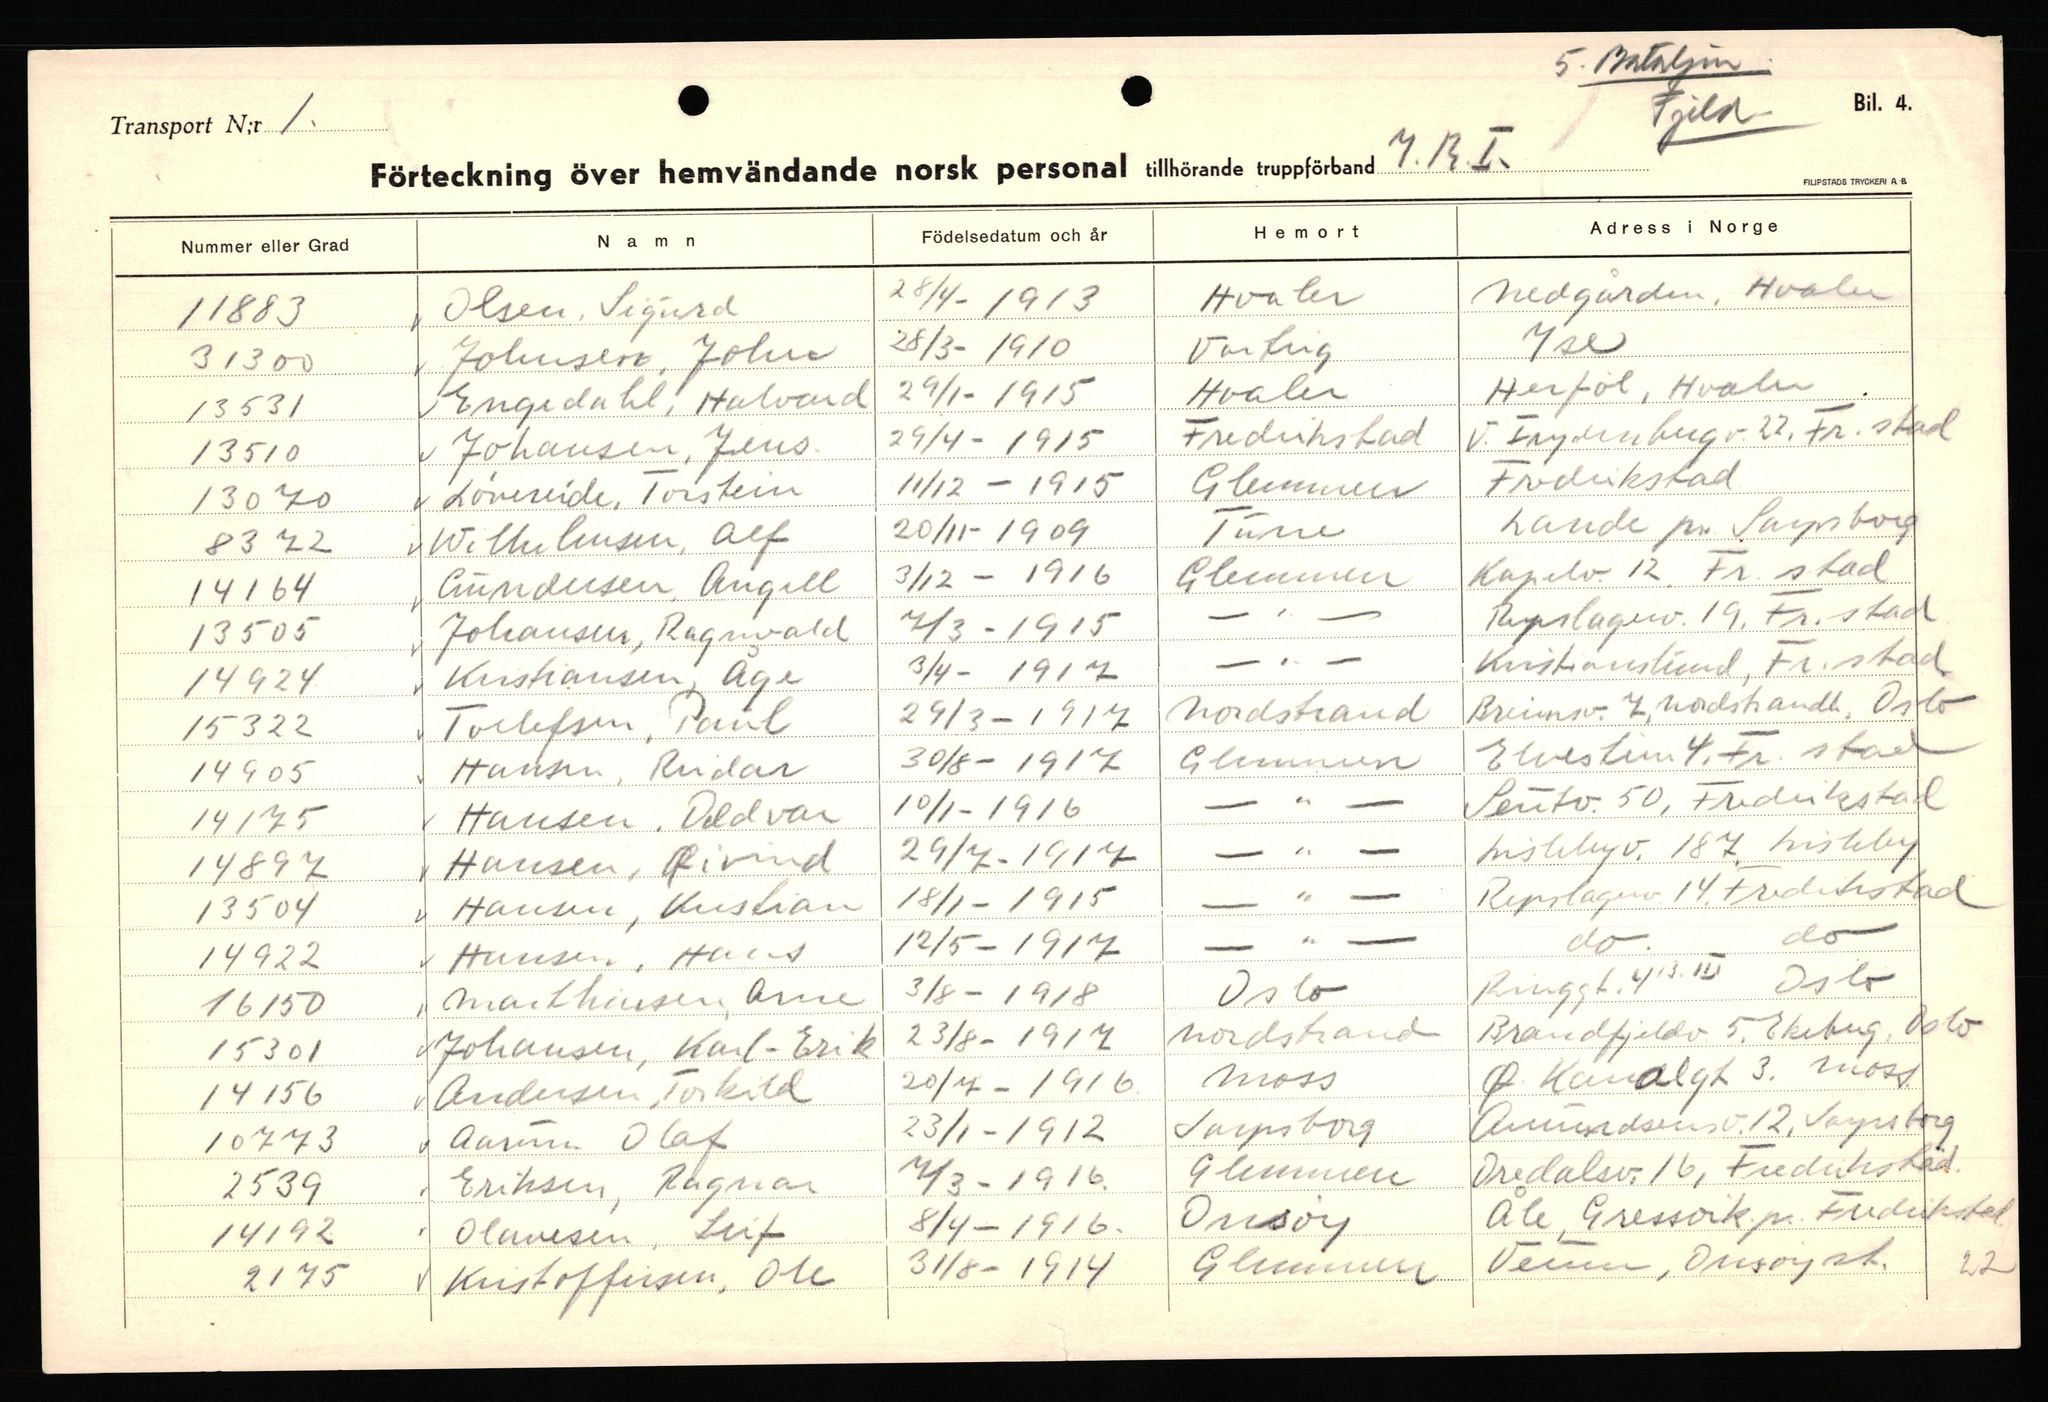 5. Bataljon.
Fjeld
Bil. 4.
Transport N:r 1.
Förteckning över hemvändande norsk personal tillhörande truppförband I.R.I.
FILIPSTADS TRYCKERI A.-B.
Nummer eller Grad Namn Födelsedatum och år Hemort Adress i Norge
11883 Olsen, Sigurd 28/4 - 1913 Hvaler Nedgården, Hvaler
31300 Johnsen, John 28/3 - 1910 Varteig Ise
13531 Engedahl, Halvard 29/1 - 1915 Hvaler Herföl, Hvaler
13510 Johansen, Jens. 29/4 - 1915 Fredrikstad V. Frydenbergv. 22, Fr. stad
13070 Lövereide, Torstein 11/12 - 1915 Glemmen Fredrikstad
8372 Wilhelmsen, Alf 20/11 - 1909 Tune Lande pr. Sarpsborg
14164 Gundersen, Angell 3/12 - 1916 Glemmen Kapelv. 12, Fr. stad
13505 Johansen, Ragnvald 7/3 - 1915 — " — Repslagerv. 19, Fr. stad
14924 Kristiansen, Åge 3/4 - 1917 — " — Kristianslund, Fr. stad
15322 Tollefsen, Paul 29/3 - 1917 Nordstrand 7, Nordstrandh. Oslo
14905 Hansen, Reidar 30/8 - 1917 Glemmen 4, Fr. stad
14175 Hansen, Oddvar 10/1 - 1916 — " — 50, Fredrikstad
14897 Hansen, Øivind 29/7 - 1917 — " — Lislebyv. 187, Lisleby
13504 Hansen, Kristian 18/1 - 1915 — " — Repslagerv. 14, Fredrikstad
14922 Hansen, Hans 12/5 - 1917 — " — do. do
16150 Marthinsen, Arne 3/8 - 1918 Oslo Ringgt. 4 B. III Oslo
15301 Johansen, Karl-Erik 23/8 - 1917 Nordstrand Brandfjeldv. 5, Ekeberg, Oslo
14156 Andersen, Torkild 20/7 - 1916. Moss Ø. Kanalgt 3. Moss.
10773 Aarum Olaf 23/1 - 1912 Sarpsborg Amundsensv. 12, Sarpsborg
2539 Eriksen, Ragnar 7/3 - 1916. Glemmen Oredalsv. 16, Fredrikstad.
14192 Olavesen, Leif 8/4 - 1916. Onsöy Åle, Gressvik p. Fredrikstad
2175 Kristoffersen, Ole 31/8 - 1914 Glemmen Veum, Onsöy st.
22